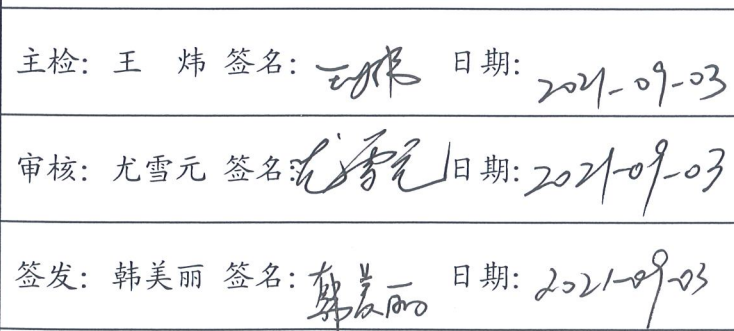 主检: 王 炜 签名: 王炜 日期: 2021-09-03
审核: 尤雪元 签名: 尤雪元 日期: 2021-09-03
签发: 韩美丽 签名: 韩美丽 日期: 2021-09-03